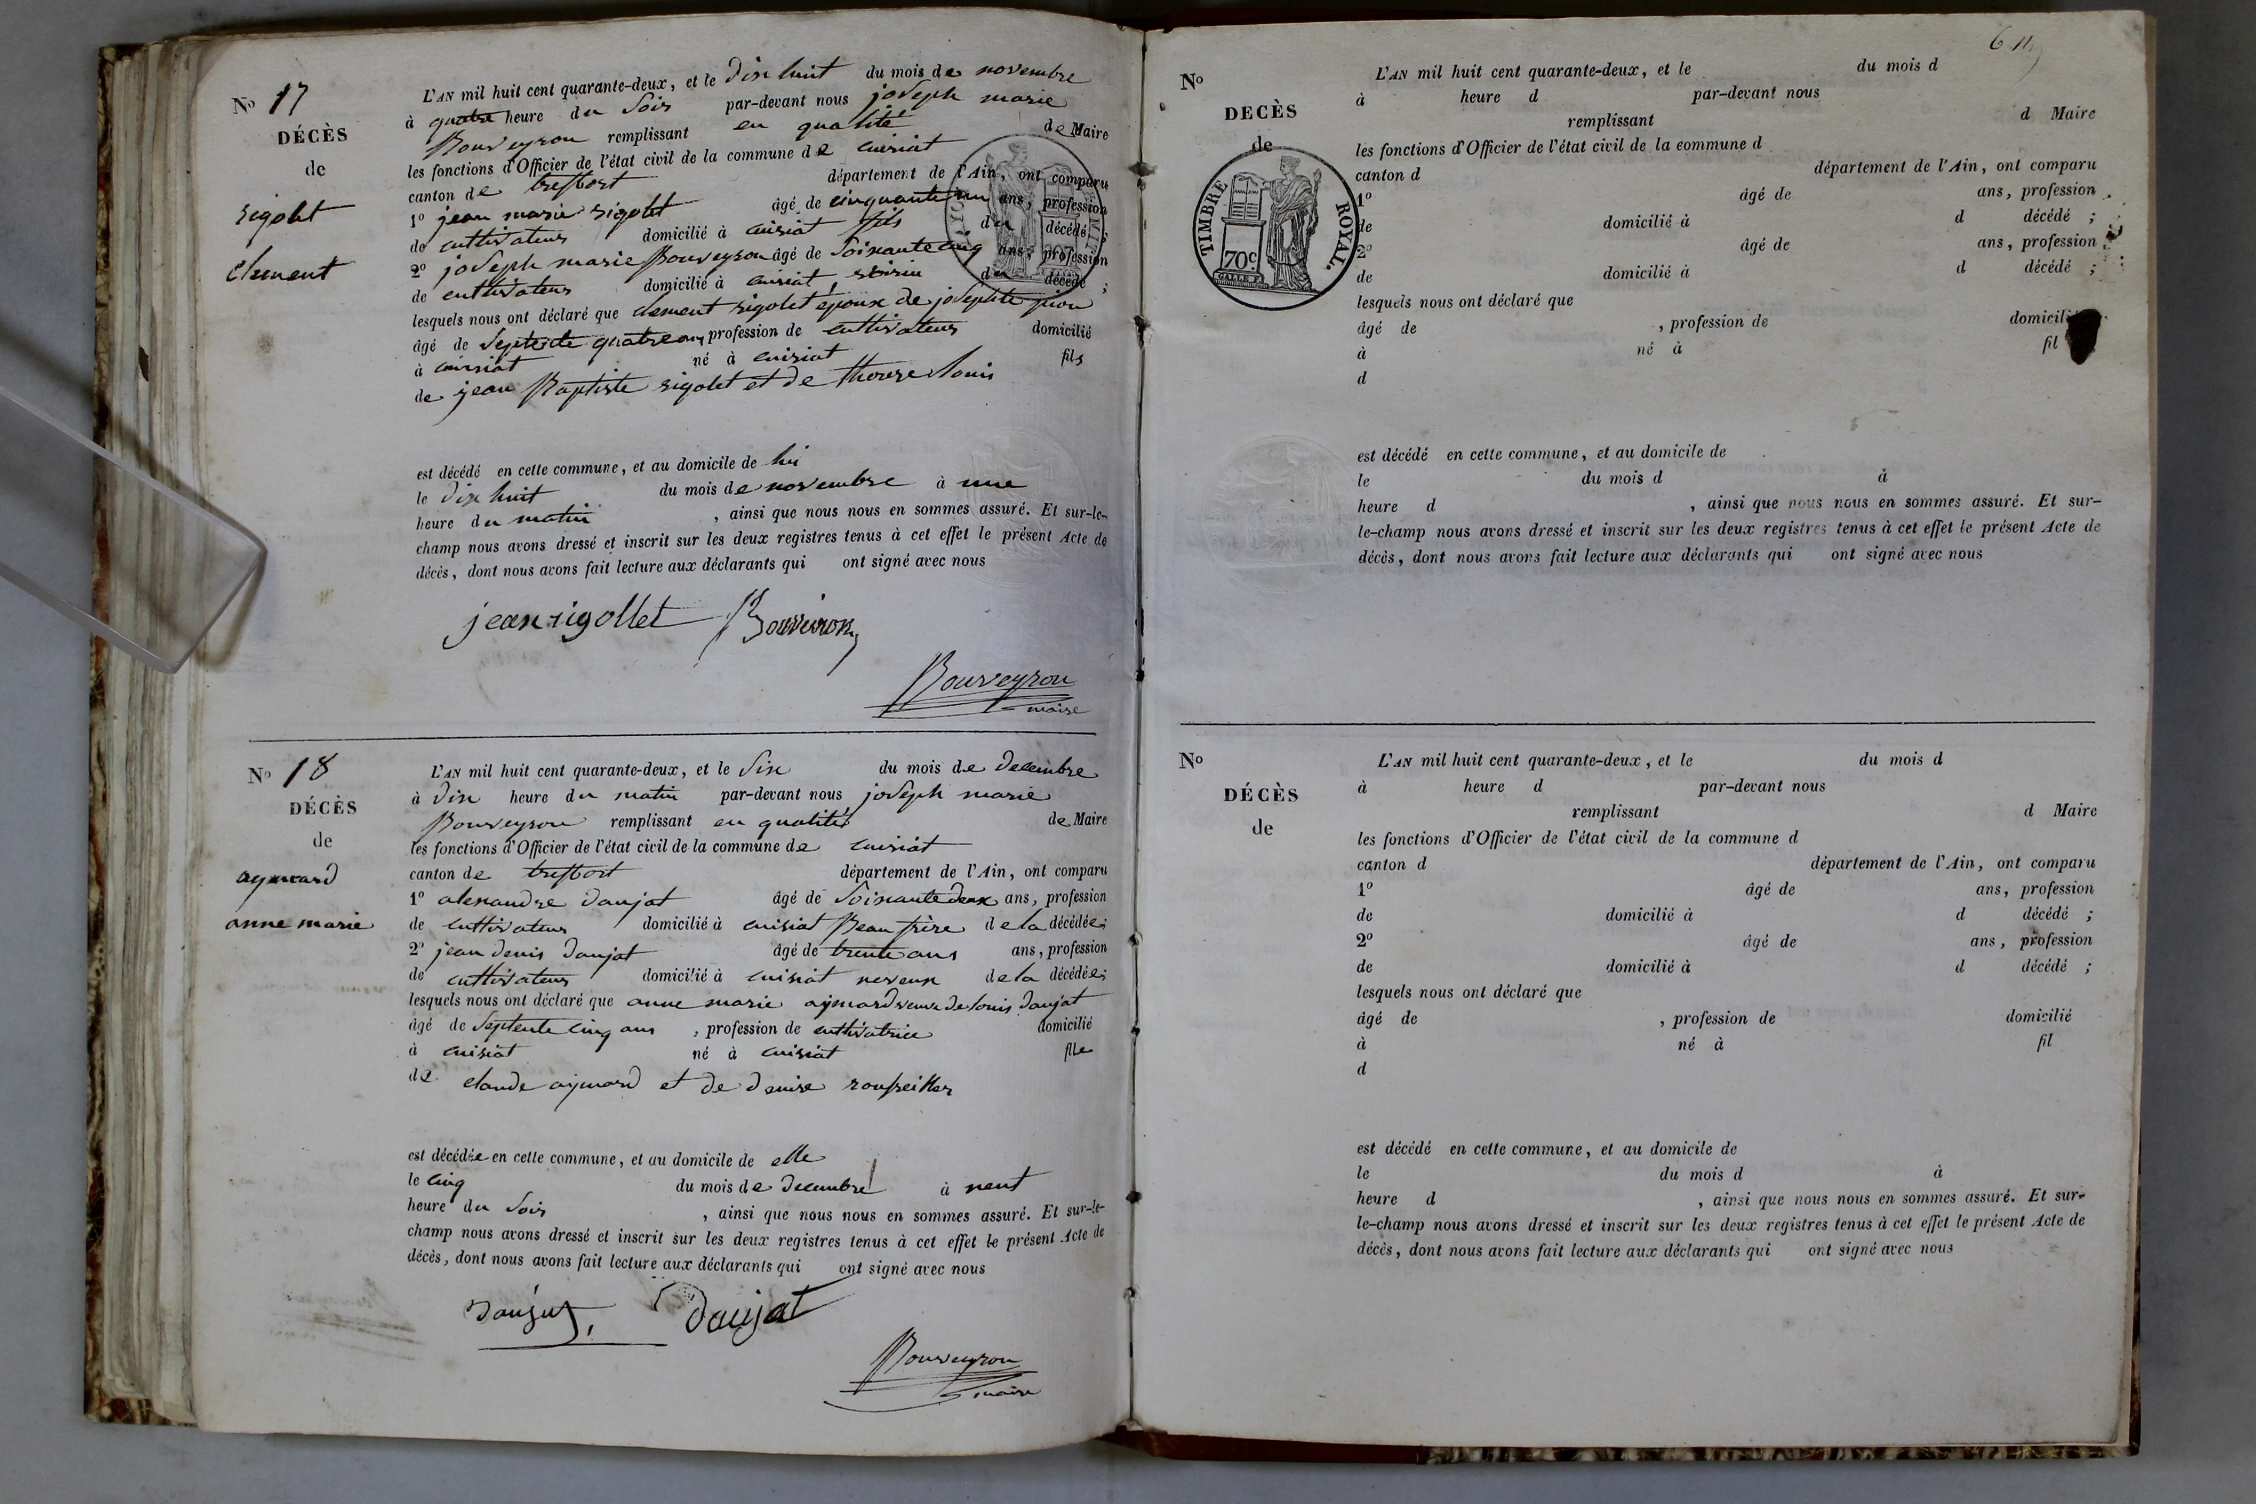 No 17
DÉCÈS
de
rigolet
clement
L'AN mil huit cent quarante-deux, et le dix huit du mois de novembre
à quatre heure du soir par-devant nous joseph marie
Bouveyron remplissant en qualité de Maire
les fonctions d'Officier de l'état civil de la commune de cuisiat
canton de treffort département de l'Ain, ont comparu
1o jean marie rigolet âgé de cinquante un ans, profession
de cultivateur domicilié à cuisiat fils du décédé ;
2o joseph marie Bouveyron âgé de soixante cinq ans, profession
de cultivateur domicilié à cuisiat voisin du décédé ;
lesquels nous ont déclaré que clement rigolet epoux de josephte pion
âgé de septente quatre ans, profession de cultivateur domicilié
à cuisiat né à cuisiat fils
de jean Baptiste rigolet et de louis
est décédé en cette commune, et au domicile de lui
le dix huit du mois de novembre à une
heure du matin , ainsi que nous nous en sommes assuré. Et sur-le-
champ nous avons dressé et inscrit sur les deux registres tenus à cet effet le présent Acte de
décès, dont nous avons fait lecture aux déclarants qui ont signé avec nous
jean rigollet Bouveiron
Bouveyron
maire
No 18
DÉCÈS
de
aymard
anne marie
L'AN mil huit cent quarante-deux, et le six du mois de decembre
à dix heure du matin par-devant nous joseph marie
Bouveyron remplissant en qualité de Maire
les fonctions d'Officier de l'état civil de la commune de cuisiat
canton de treffort département de l'Ain, ont comparu
1o alexandre daujat âgé de soixante deux ans, profession
de cultivateur domicilié à cuisiat Beau frère de la décédée ;
2o jean denis daujat âgé de trente ans ans, profession
de cultivateur domicilié à cuisiat neveux de la décédée ;
lesquels nous ont déclaré que anne marie aymard veuve de louis daujat
âgé de septente cinq ans , profession de cultivatrice domicilié
à cuisiat né à cuisiat fille
de claude aymard et de denise
est décédée en cette commune, et au domicile de elle
le cinq du mois de decembre à neuf
heure du soir , ainsi que nous nous en sommes assuré. Et sur-le-
champ nous avons dressé et inscrit sur les deux registres tenus à cet effet le présent Acte de
décès, dont nous avons fait lecture aux déclarants qui ont signé avec nous
daujat daujat
Bouveyron
maire
No
DECÈS
de
TIMBRE ROYAL.
70c
L'AN mil huit cent quarante-deux, et le du mois d
à heure d par-devant nous
remplissant d Maire
les fonctions d'Officier de l'état civil de la commune d
canton d département de l'Ain, ont comparu
1o âgé de ans, profession
de domicilié à d décédé ;
2o âgé de ans, profession
de domicilié à d décédé ;
lesquels nous ont déclaré que
âgé de , profession de domicili
à né à fil
d
est décédé en cette commune, et au domicile de
le du mois d à
heure d , ainsi que nous nous en sommes assuré. Et sur-
le-champ nous avons dressé et inscrit sur les deux registres tenus à cet effet le présent Acte de
décès, dont nous avons fait lecture aux déclarants qui ont signé avec nous
No
DÉCÈS
de
L'AN mil huit cent quarante-deux, et le du mois d
à heure d par-devant nous
remplissant d Maire
les fonctions d'Officier de l'état civil de la commune d
canton d département de l'Ain, ont comparu
1o âgé de ans, profession
de domicilié à d décédé ;
2o âgé de ans, profession
de domicilié à d décédé ;
lesquels nous ont déclaré que
âgé de , profession de domicilié
à né à fil
d
est décédé en cette commune, et au domicile de
le du mois d à
heure d , ainsi que nous nous en sommes assuré. Et sur-
le-champ nous avons dressé et inscrit sur les deux registres tenus à cet effet le présent Acte de
décès, dont nous avons fait lecture aux déclarants qui ont signé avec nous